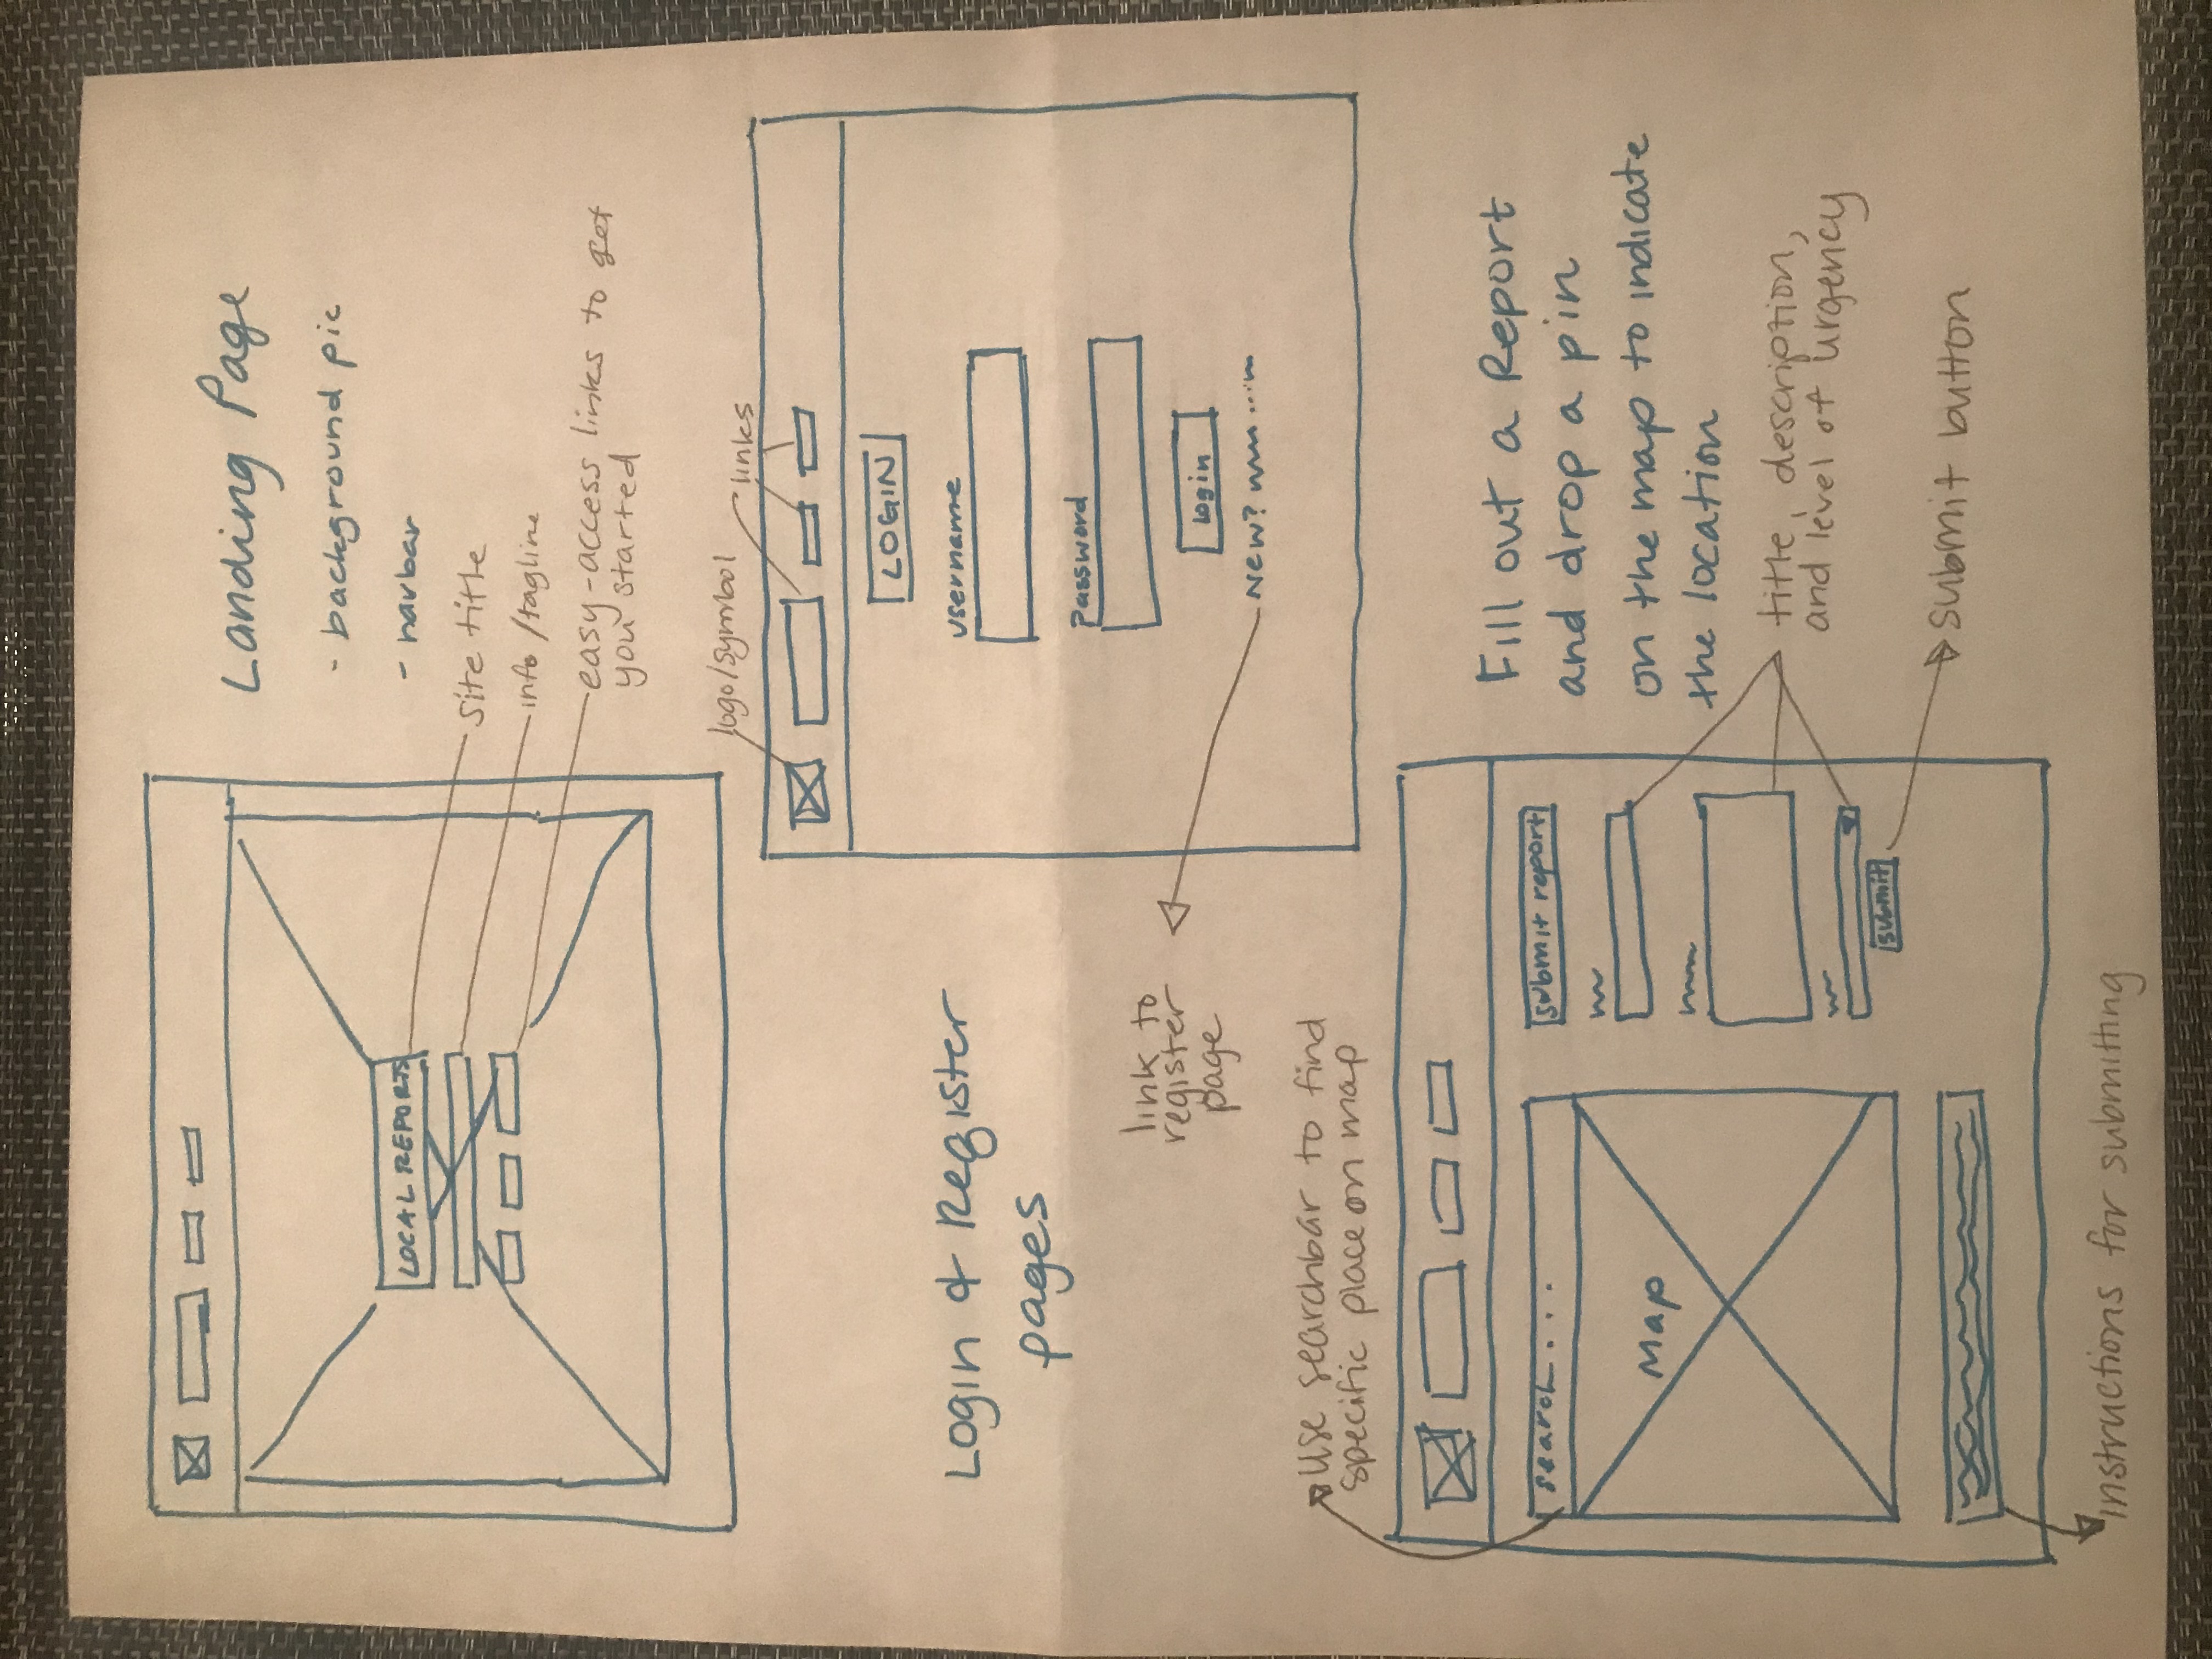 LOCAL REPORTS
Landing Page
- background pic
- navbar
site title
info/tagline
easy-access links to get
you started
Login & Register
pages
logo/symbol
links
LOGIN
username
password
login
New?
link to
register
page
use searchbar to find
specific place on map
search...
Map
submit report
submit
Fill out a Report
and drop a pin
on the map to indicate
the location
title, description,
and level of urgency
submit button
instructions for submitting